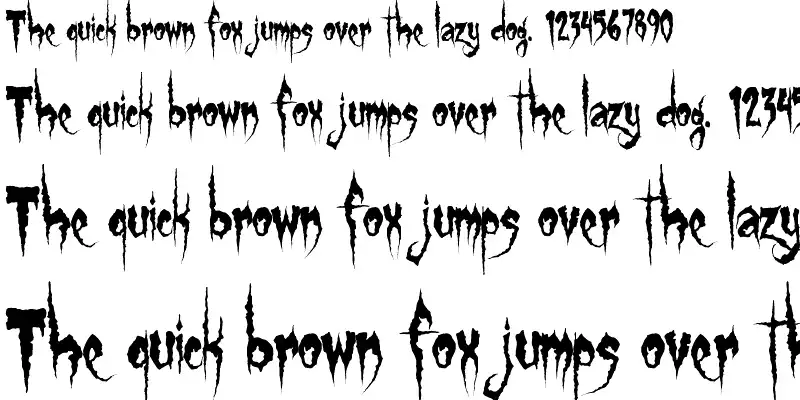 The quick brown fox jumps over the lazy dog. 1234567890
The quick brown fox jumps over the lazy dog. 12345
The quick brown fox jumps over the lazy
The quick brown fox jumps over th